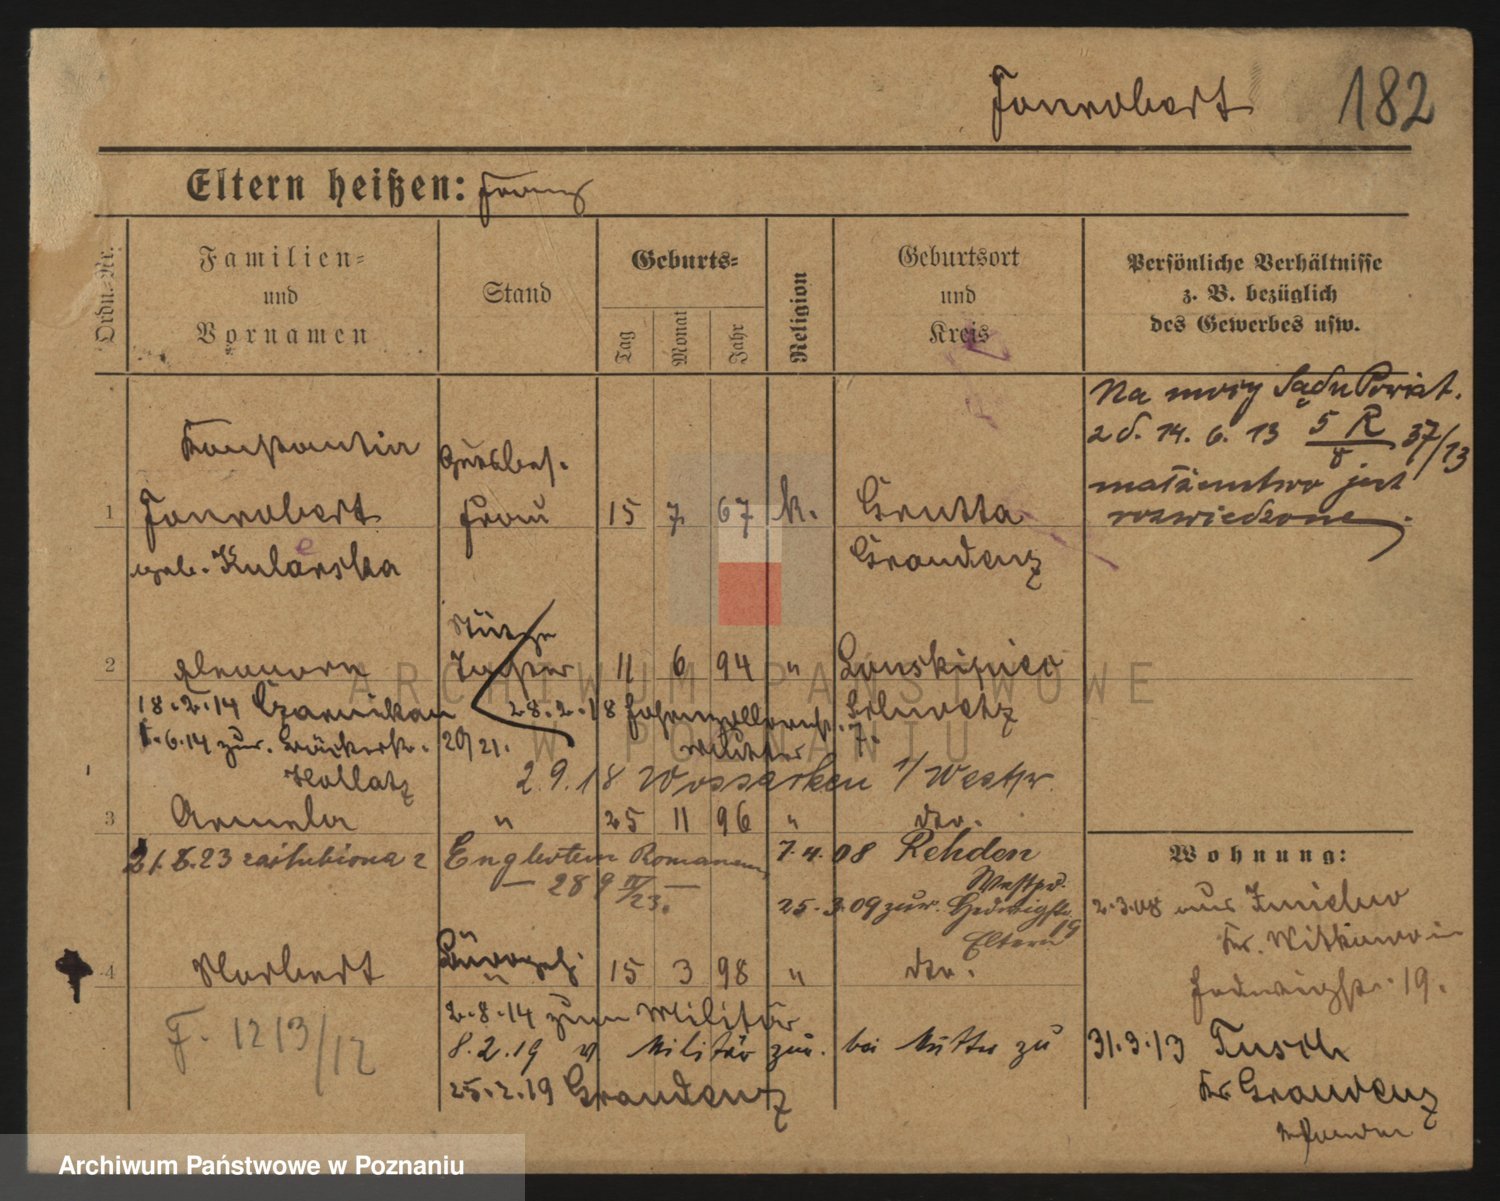 Fonrobert 182
Eltern heißen: Franz
Ordn.-Nr.
Familien-
und
Vornamen
Stand
Geburts-
Tag
Monat
Jahr
Religion
Geburtsort
und
Kreis
Persönliche Verhältnisse
z. B. bezüglich
des Gewerbes usw.
Na mocy Sądu Powiat.
z d. 14. 6. 13 5 R 37/13
8
małżeństwo jest
rozwiedzone.
Konstantia Gutsbes.
1 Fonrobert Frau 15 7 67 k. Grutta
geb. Kularska Graudenz
Stütze
2 Eleonore Tochter 11 6 94 "
18.2.14 Czarnikau 28.2.18 Hohenzollernstr. 7.
1.6.14 zur. Bäckerstr. 20/21. Mutter
Kollatz
2.9.18 Wossarken i/Westpr.
3 " 25 11 96 " do.
21.8.23 zaślubiona z Englertem Romanem
— 289 IV/23. —
7.4.08 Rehden
Westpr.
25.3.09 zur. Hedwigstr. 19
Eltern
4 Norbert " 15 3 98 " do.
F. 1213/12
2.8.14 zum Militär
8.2.19 v Militär zur. bei Mutter zu
25.2.19 Graudenz
Wohnung:
2.3.08 aus
Kr. Witkowo in
Hedwigstr. 19.
31.3.13 Tusch
Kr. Graudenz
Archiwum Państwowe
w Poznaniu
Archiwum Państwowe w Poznaniu